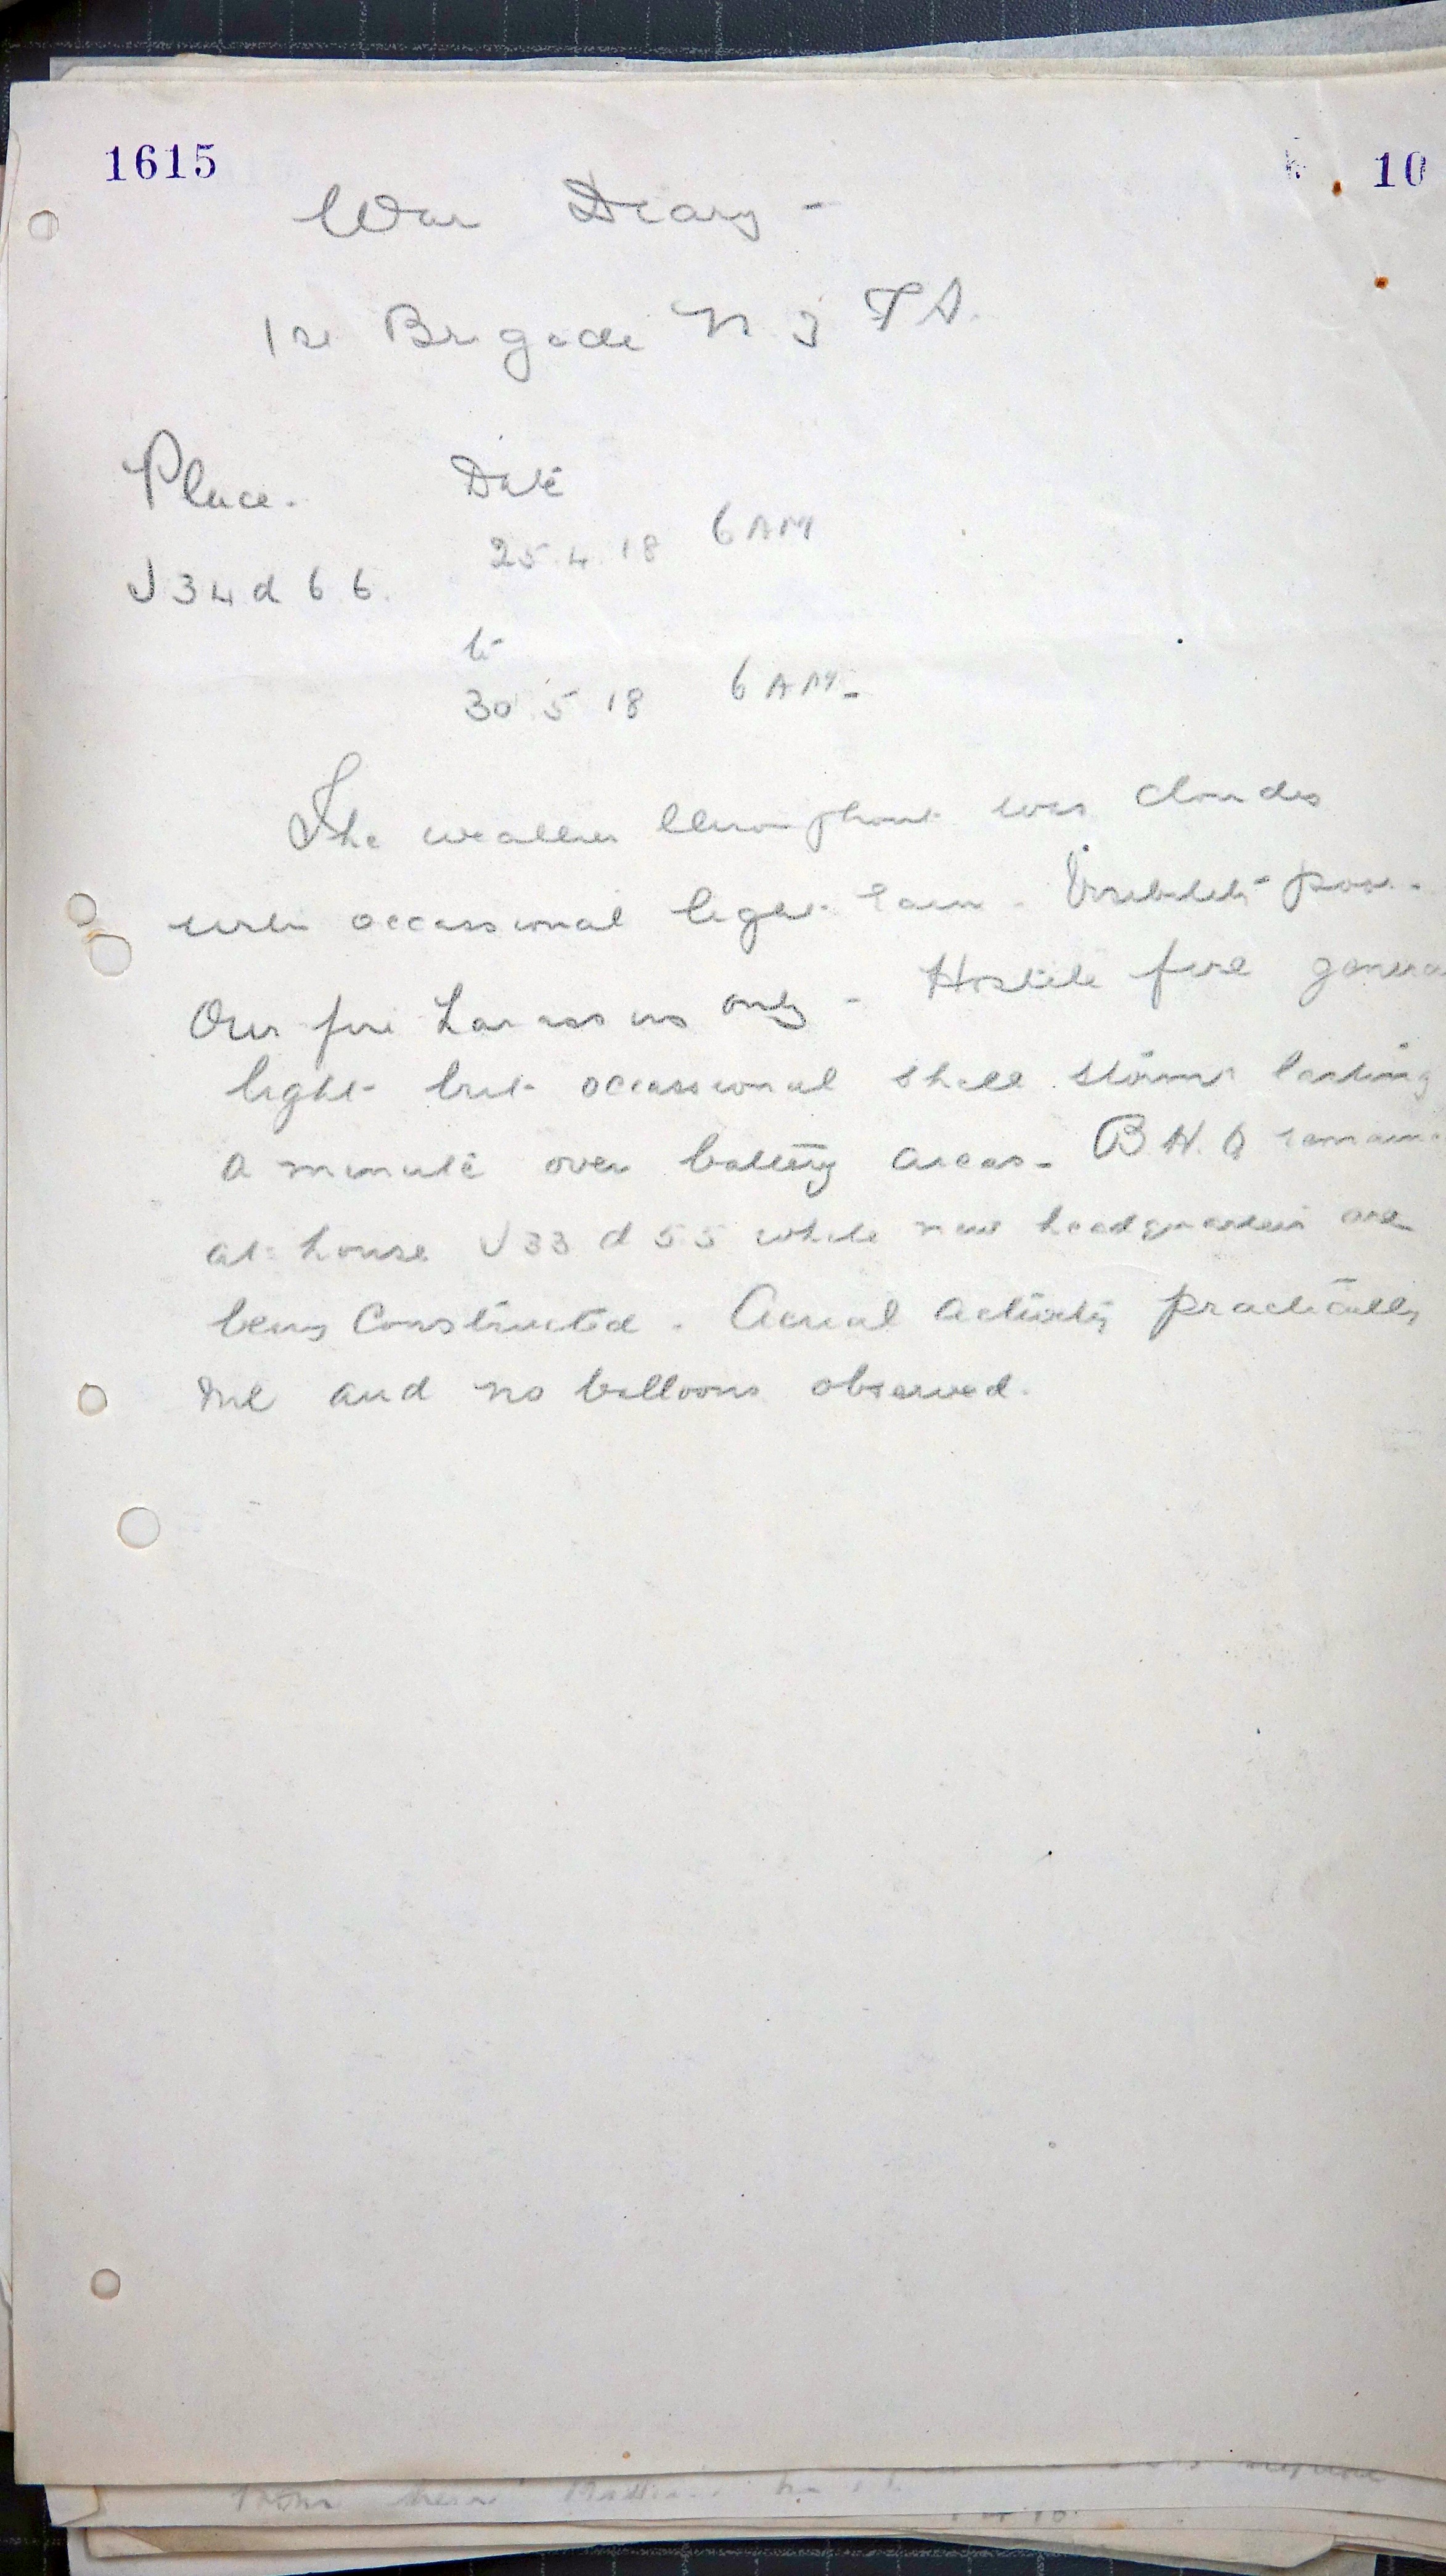 1615
10
War Diary -
1st Brigade N Z F A.
Place.
Date
25.4.18 6 AM
J 34 d 6 6.
to
30 5 18 6 AM-
The weather throughout was cloudy
with occassional light rain. Visibility poor.
Our fire harassing only - Hostile fire genera
light but occassional shell storms lasting
a minute over battery areas. B H. Q remain
at house J 33 d 5 5 while new headquarters are
being constructed. Aerial activity practically
nil and no balloons observed.